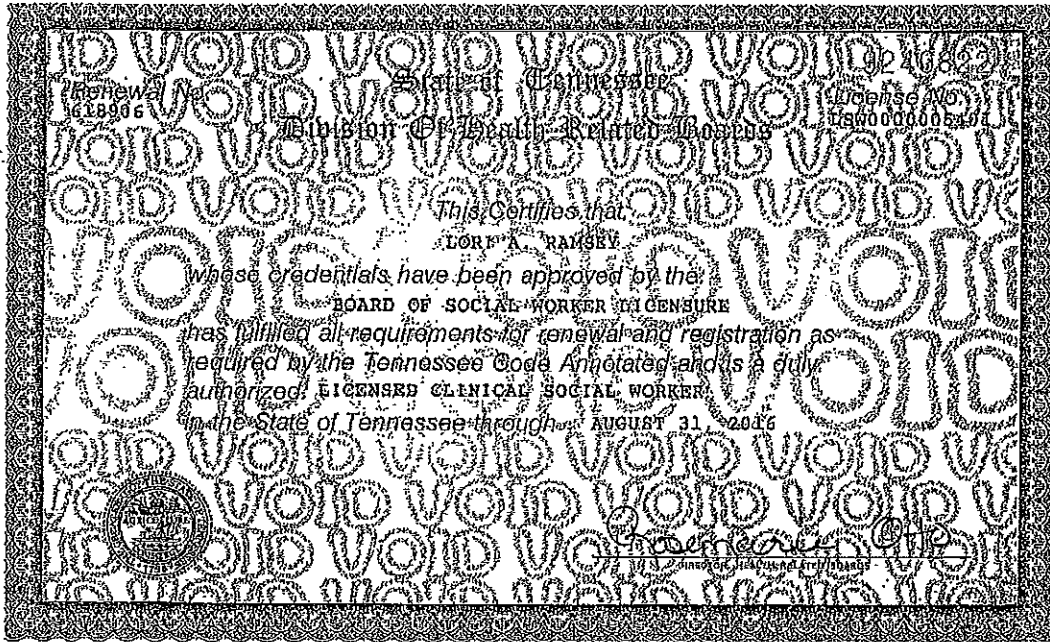 0240822
State of Tennessee
Renewal No.
618906
License No.
LSW0000005401
Division Of Health Related Boards
This Certifies that
LORI A. RAMSEY
whose credentials have been approved by the
BOARD OF SOCIAL WORKER LICENSURE
has fulfilled all requirements for renewal and registration as
required by the Tennessee Code Annotated and is a duly
authorized: LICENSED CLINICAL SOCIAL WORKER
in the State of Tennessee through AUGUST 31, 2016
VOID VOID VOID VOID
AGRICULTURE
DIRECTOR, HEALTH RELATED BOARDS